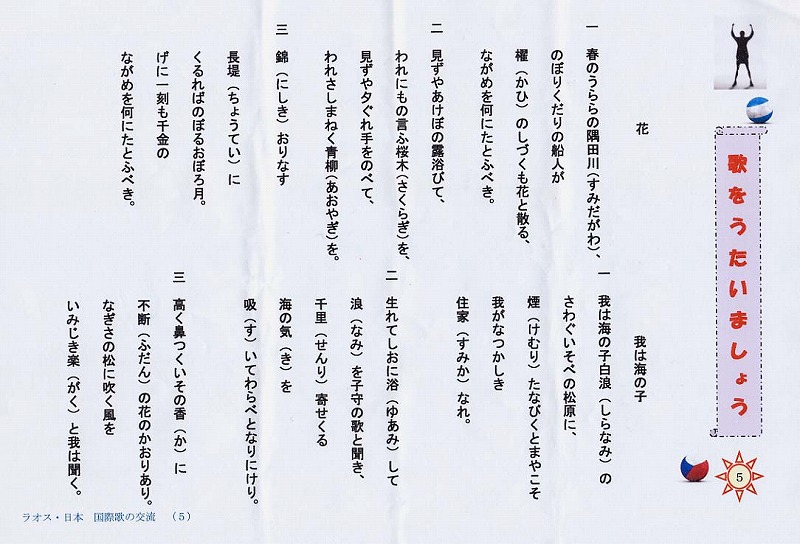 歌をうたいましょう
5
花
一　春のうららの隅田川（すみだがわ）、
のぼりくだりの船人が
櫂（かひ）のしづくも花と散る、
ながめを何にたとふべき。
二　見ずやあけぼの露浴びて、
われにもの言ふ桜木（さくらぎ）を、
見ずや夕ぐれ手をのべて、
われさしまねく青柳（あおやぎ）を。
三　錦（にしき）おりなす
長堤（ちょうてい）に
くるればのぼるおぼろ月。
げに一刻も千金の
ながめを何にたとふべき。
我は海の子
一　我は海の子白浪（しらなみ）の
さわぐいそべの松原に、
煙（けむり）たなびくとまやこそ
我がなつかしき
住家（すみか）なれ。
二　生れてしおに浴（ゆあみ）して
浪（なみ）を子守の歌と聞き、
千里（せんり）寄せくる
海の気（き）を
吸（す）いてわらべとなりにけり。
三　高く鼻つくいその香（か）に
不断（ふだん）の花のかおりあり。
なぎさの松に吹く風を
いみじき楽（がく）と我は聞く。
ラオス・日本　国際歌の交流　（５）